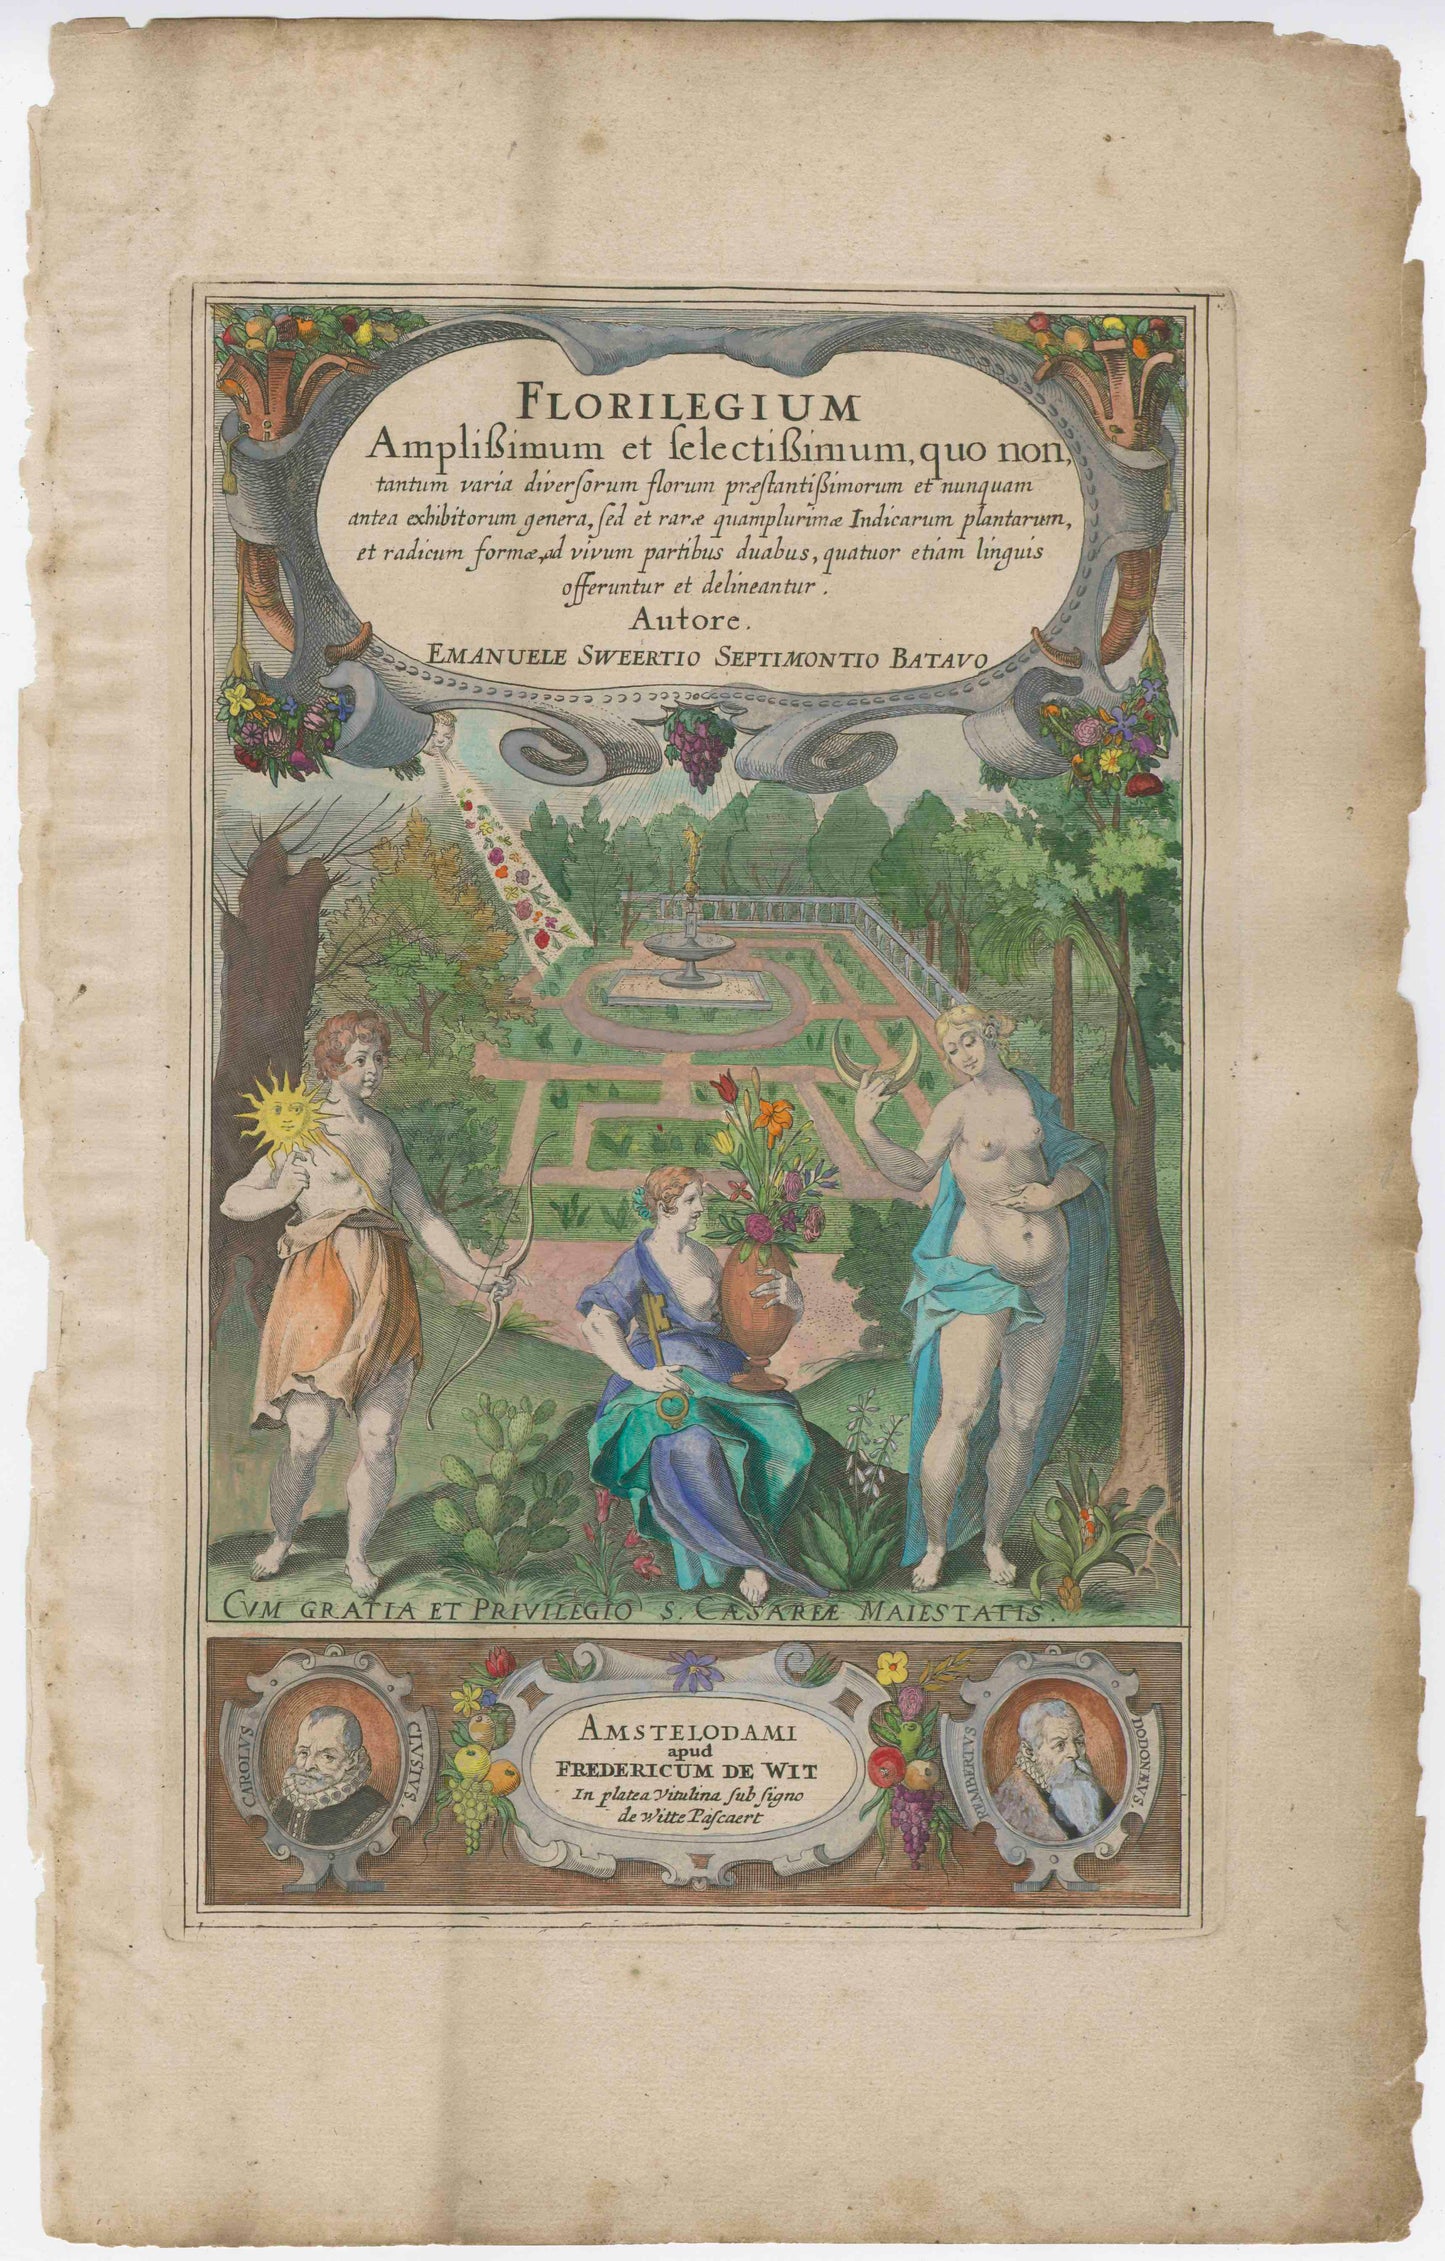 FLORILEGIUM
Amplißimum et ſelectißimum, quo non,
tantum varia diverſorum florum præſtantißimorum et nunquam
antea exhibitorum genera, ſed et raræ quamplurimæ Indicarum plantarum,
et radicum formæ, ad vivum partibus duabus, quatuor etiam linguis
offeruntur et delineantur.
Autore.
EMANUELE SWEERTIO SEPTIMONTIO BATAVO
CVM GRATIA ET PRIVILEGIO S. CÆSAREÆ MAIESTATIS.
CAROLVS CLVSTVS.
AMSTELODAMI
apud
FREDERICUM DE WIT
In platea Vitulina ſub ſigno
de Witte Paſcaert
REMBERTVS DODONÆVS.